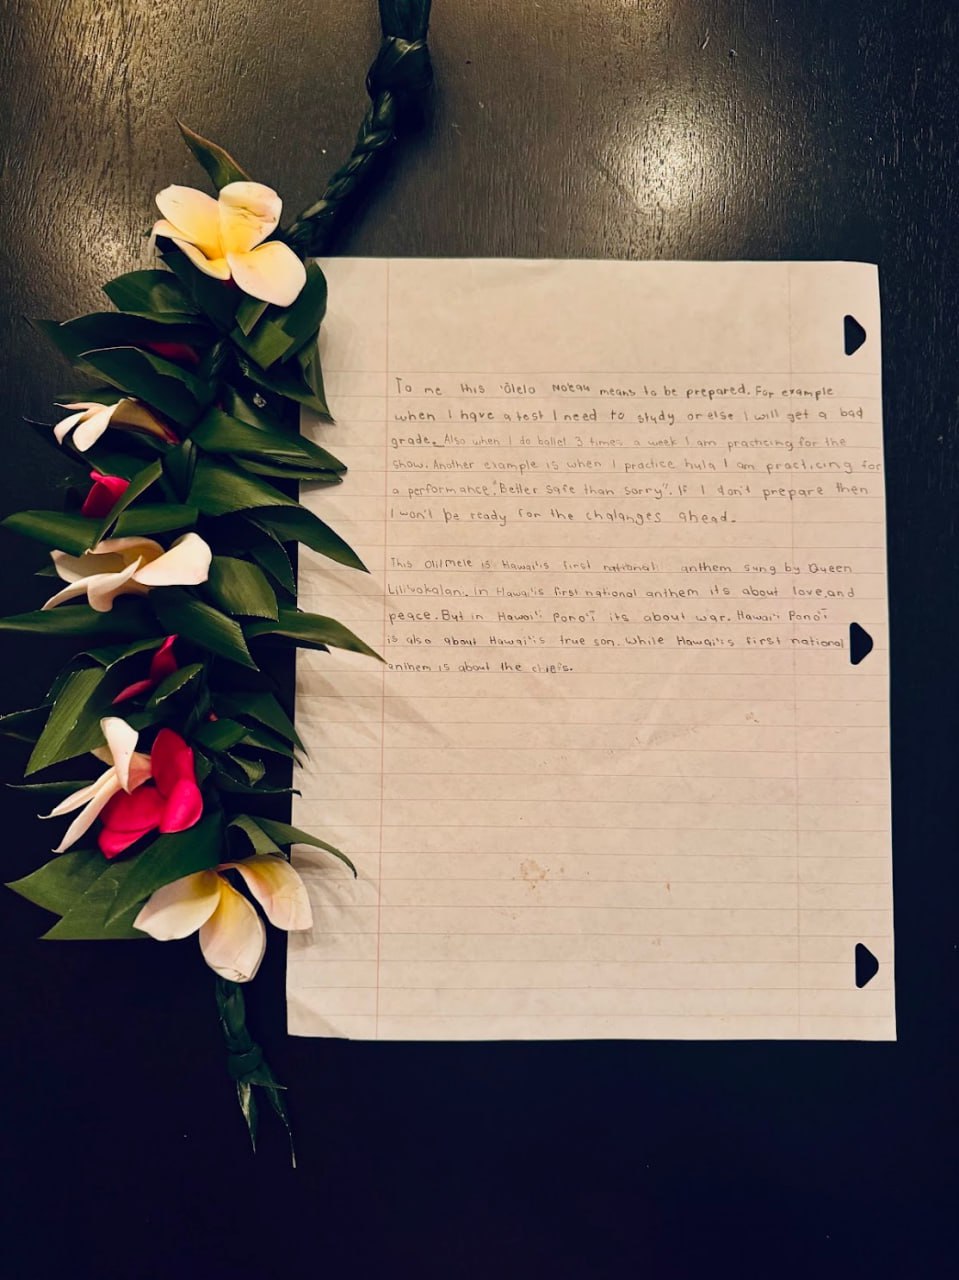 To me this ʻŌlelo Noʻeau means to be prepared. For example
when I have a test I need to study or else I will get a bad
grade. Also when I do ballet 3 times a week I am practicing for the
show. Another example is when I practice hula I am practicing for
a performance. "Better safe than sorry". If I don't prepare then
I won't be ready for the chalanges ahead.
This Oli/Mele is Hawaiʻis first national anthem sung by Queen
Liliʻuokalani. In Hawaiʻis first national anthem its about love and
peace. But in Hawaiʻi Ponoʻī its about war. Hawaiʻi Ponoʻī
is also about Hawaiʻis true son. While Hawaiʻis first national
anthem is about the chiefs.